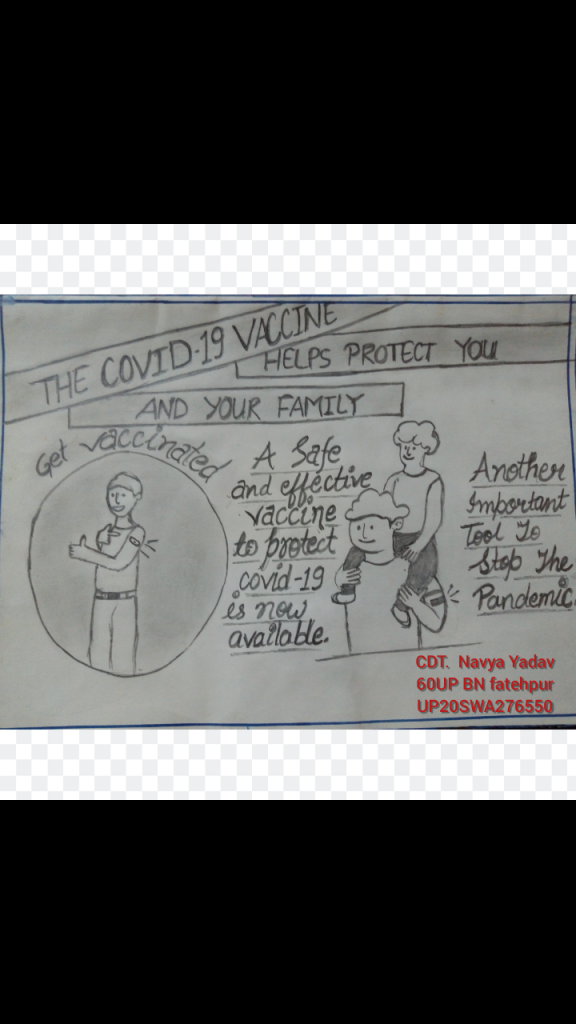 THE COVID-19 VACCINE
HELPS PROTECT YOU
AND YOUR FAMILY
Get vaccinated
A Safe
and effective
vaccine
to protect
covid-19
is now
available.
Another
Important
Tool To
Stop The
Pandemic.
CDT. Navya Yadav
60UP BN fatehpur
UP20SWA276550